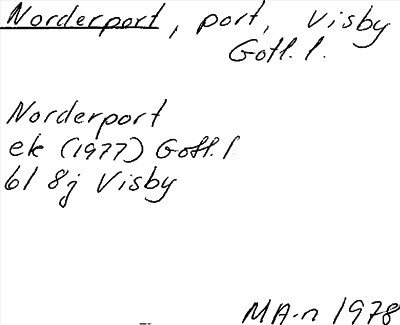 Norderport, port, Visby
Gotl. l.
Norderport
ek (1977) Gotl. l
6I 8j Visby
MA-n 1978